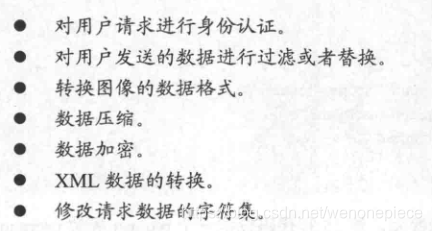 ● 对用户请求进行身份认证。
● 对用户发送的数据进行过滤或者替换。
● 转换图像的数据格式。
● 数据压缩。
● 数据加密。
● XML 数据的转换。
● 修改请求数据的字符集。
csdn.net/wenonepiece